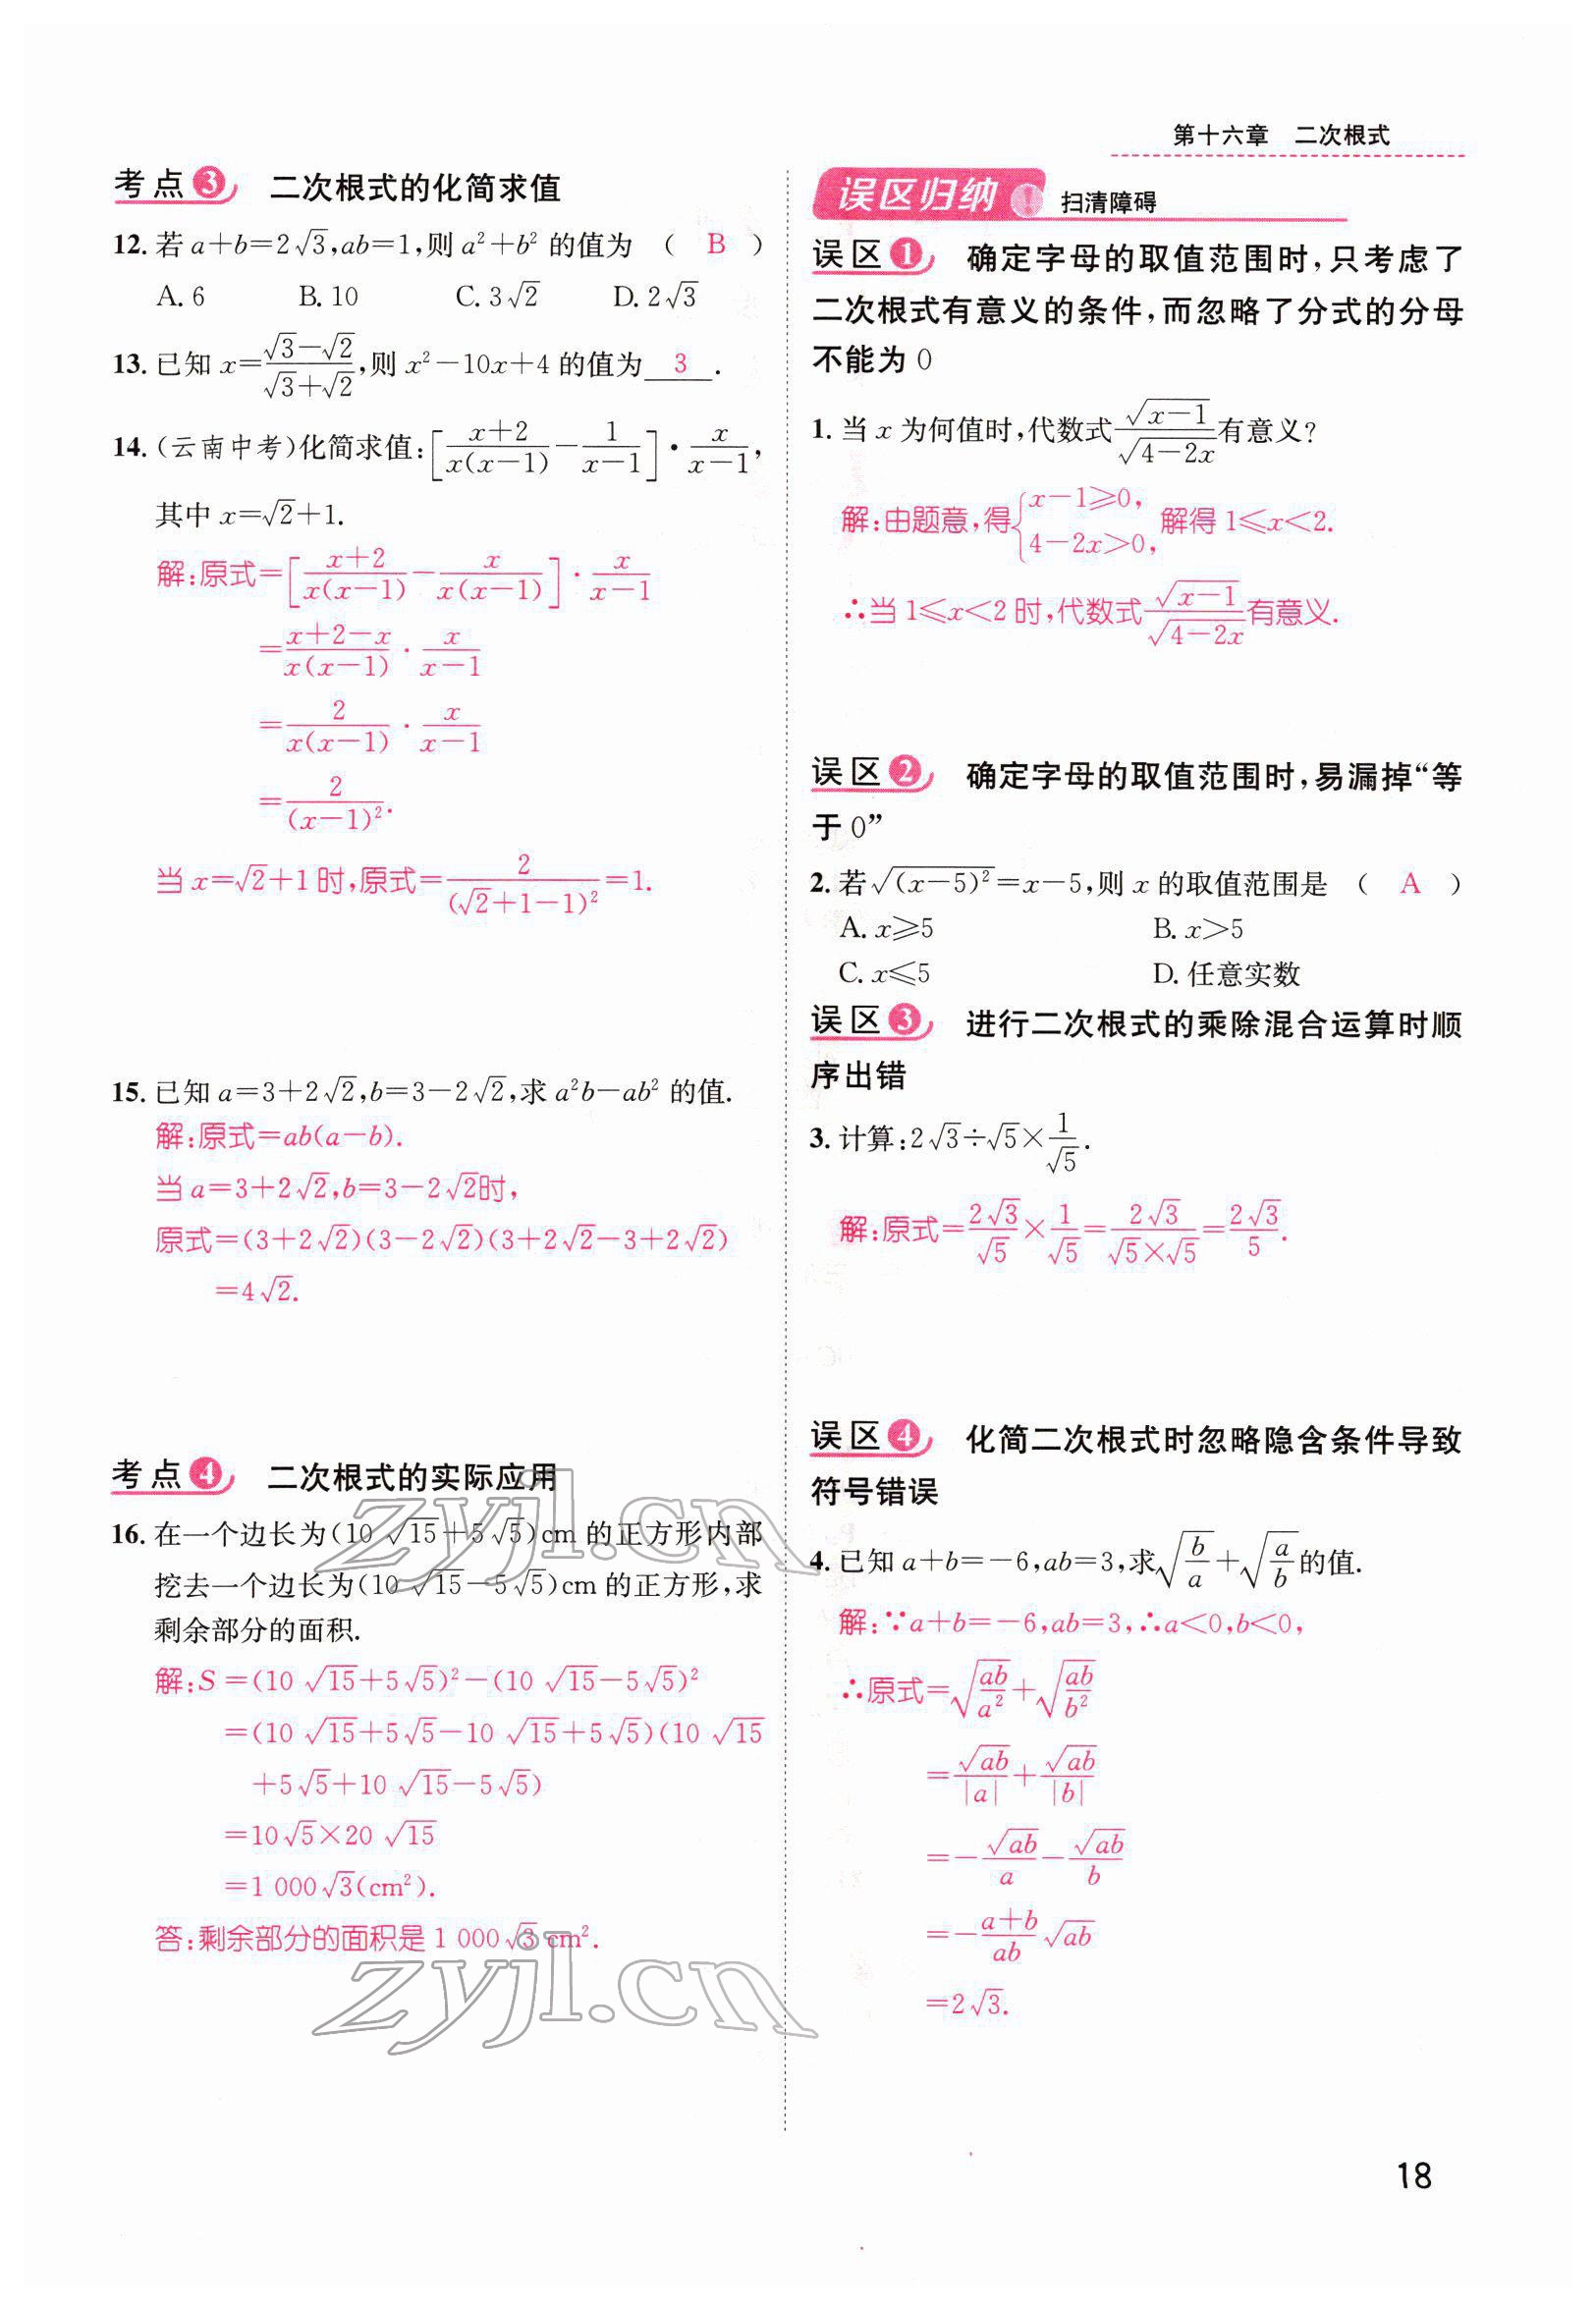 第十六章 二次根式
考点3 二次根式的化简求值
12. 若 a+b=2√3,ab=1,则 a²+b² 的值为 ( B )
A. 6 B. 10 C. 3√2 D. 2√3
13. 已知 x=(√3-√2)/(√3+√2),则 x²-10x+4 的值为 3 .
14. (云南中考)化简求值:[(x+2)/(x(x-1))-1/(x-1)]·x/(x-1),
其中 x=√2+1.
解:原式=[(x+2)/(x(x-1))-x/(x(x-1))]·x/(x-1)
=(x+2-x)/(x(x-1))·x/(x-1)
=2/(x(x-1))·x/(x-1)
=2/(x-1)².
当 x=√2+1 时,原式=2/(√2+1-1)²=1.
15. 已知 a=3+2√2,b=3-2√2,求 a²b-ab² 的值.
解:原式=ab(a-b).
当 a=3+2√2,b=3-2√2时,
原式=(3+2√2)(3-2√2)(3+2√2-3+2√2)
=4√2.
考点4 二次根式的实际应用
16. 在一个边长为(10√15+5√5)cm 的正方形内部
挖去一个边长为(10√15-5√5)cm 的正方形,求
剩余部分的面积.
解:S=(10√15+5√5)²-(10√15-5√5)²
=(10√15+5√5-10√15+5√5)(10√15
+5√5+10√15-5√5)
=10√5×20√15
=1 000√3(cm²).
答:剩余部分的面积是 1 000√3 cm².
误区归纳 ! 扫清障碍
误区1 确定字母的取值范围时,只考虑了
二次根式有意义的条件,而忽略了分式的分母
不能为 0
1. 当 x 为何值时,代数式√(x-1)/√(4-2x)有意义?
解:由题意,得{x-1≥0, 4-2x>0, 解得 1≤x<2.
∴当 1≤x<2 时,代数式√(x-1)/√(4-2x)有意义.
误区2 确定字母的取值范围时,易漏掉“等
于 0”
2. 若√((x-5)²)=x-5,则 x 的取值范围是 ( A )
A. x≥5 B. x>5
C. x≤5 D. 任意实数
误区3 进行二次根式的乘除混合运算时顺
序出错
3. 计算:2√3÷√5×1/√5.
解:原式=2√3/√5×1/√5=2√3/(√5×√5)=2√3/5.
误区4 化简二次根式时忽略隐含条件导致
符号错误
4. 已知 a+b=-6,ab=3,求√(b/a)+√(a/b)的值.
解:∵a+b=-6,ab=3,∴a<0,b<0,
∴原式=√(ab/a²)+√(ab/b²)
=√ab/|a|+√ab/|b|
=-√ab/a-√ab/b
=-(a+b)/ab √ab
=2√3.
18
zyjl.cn
zyjl.cn